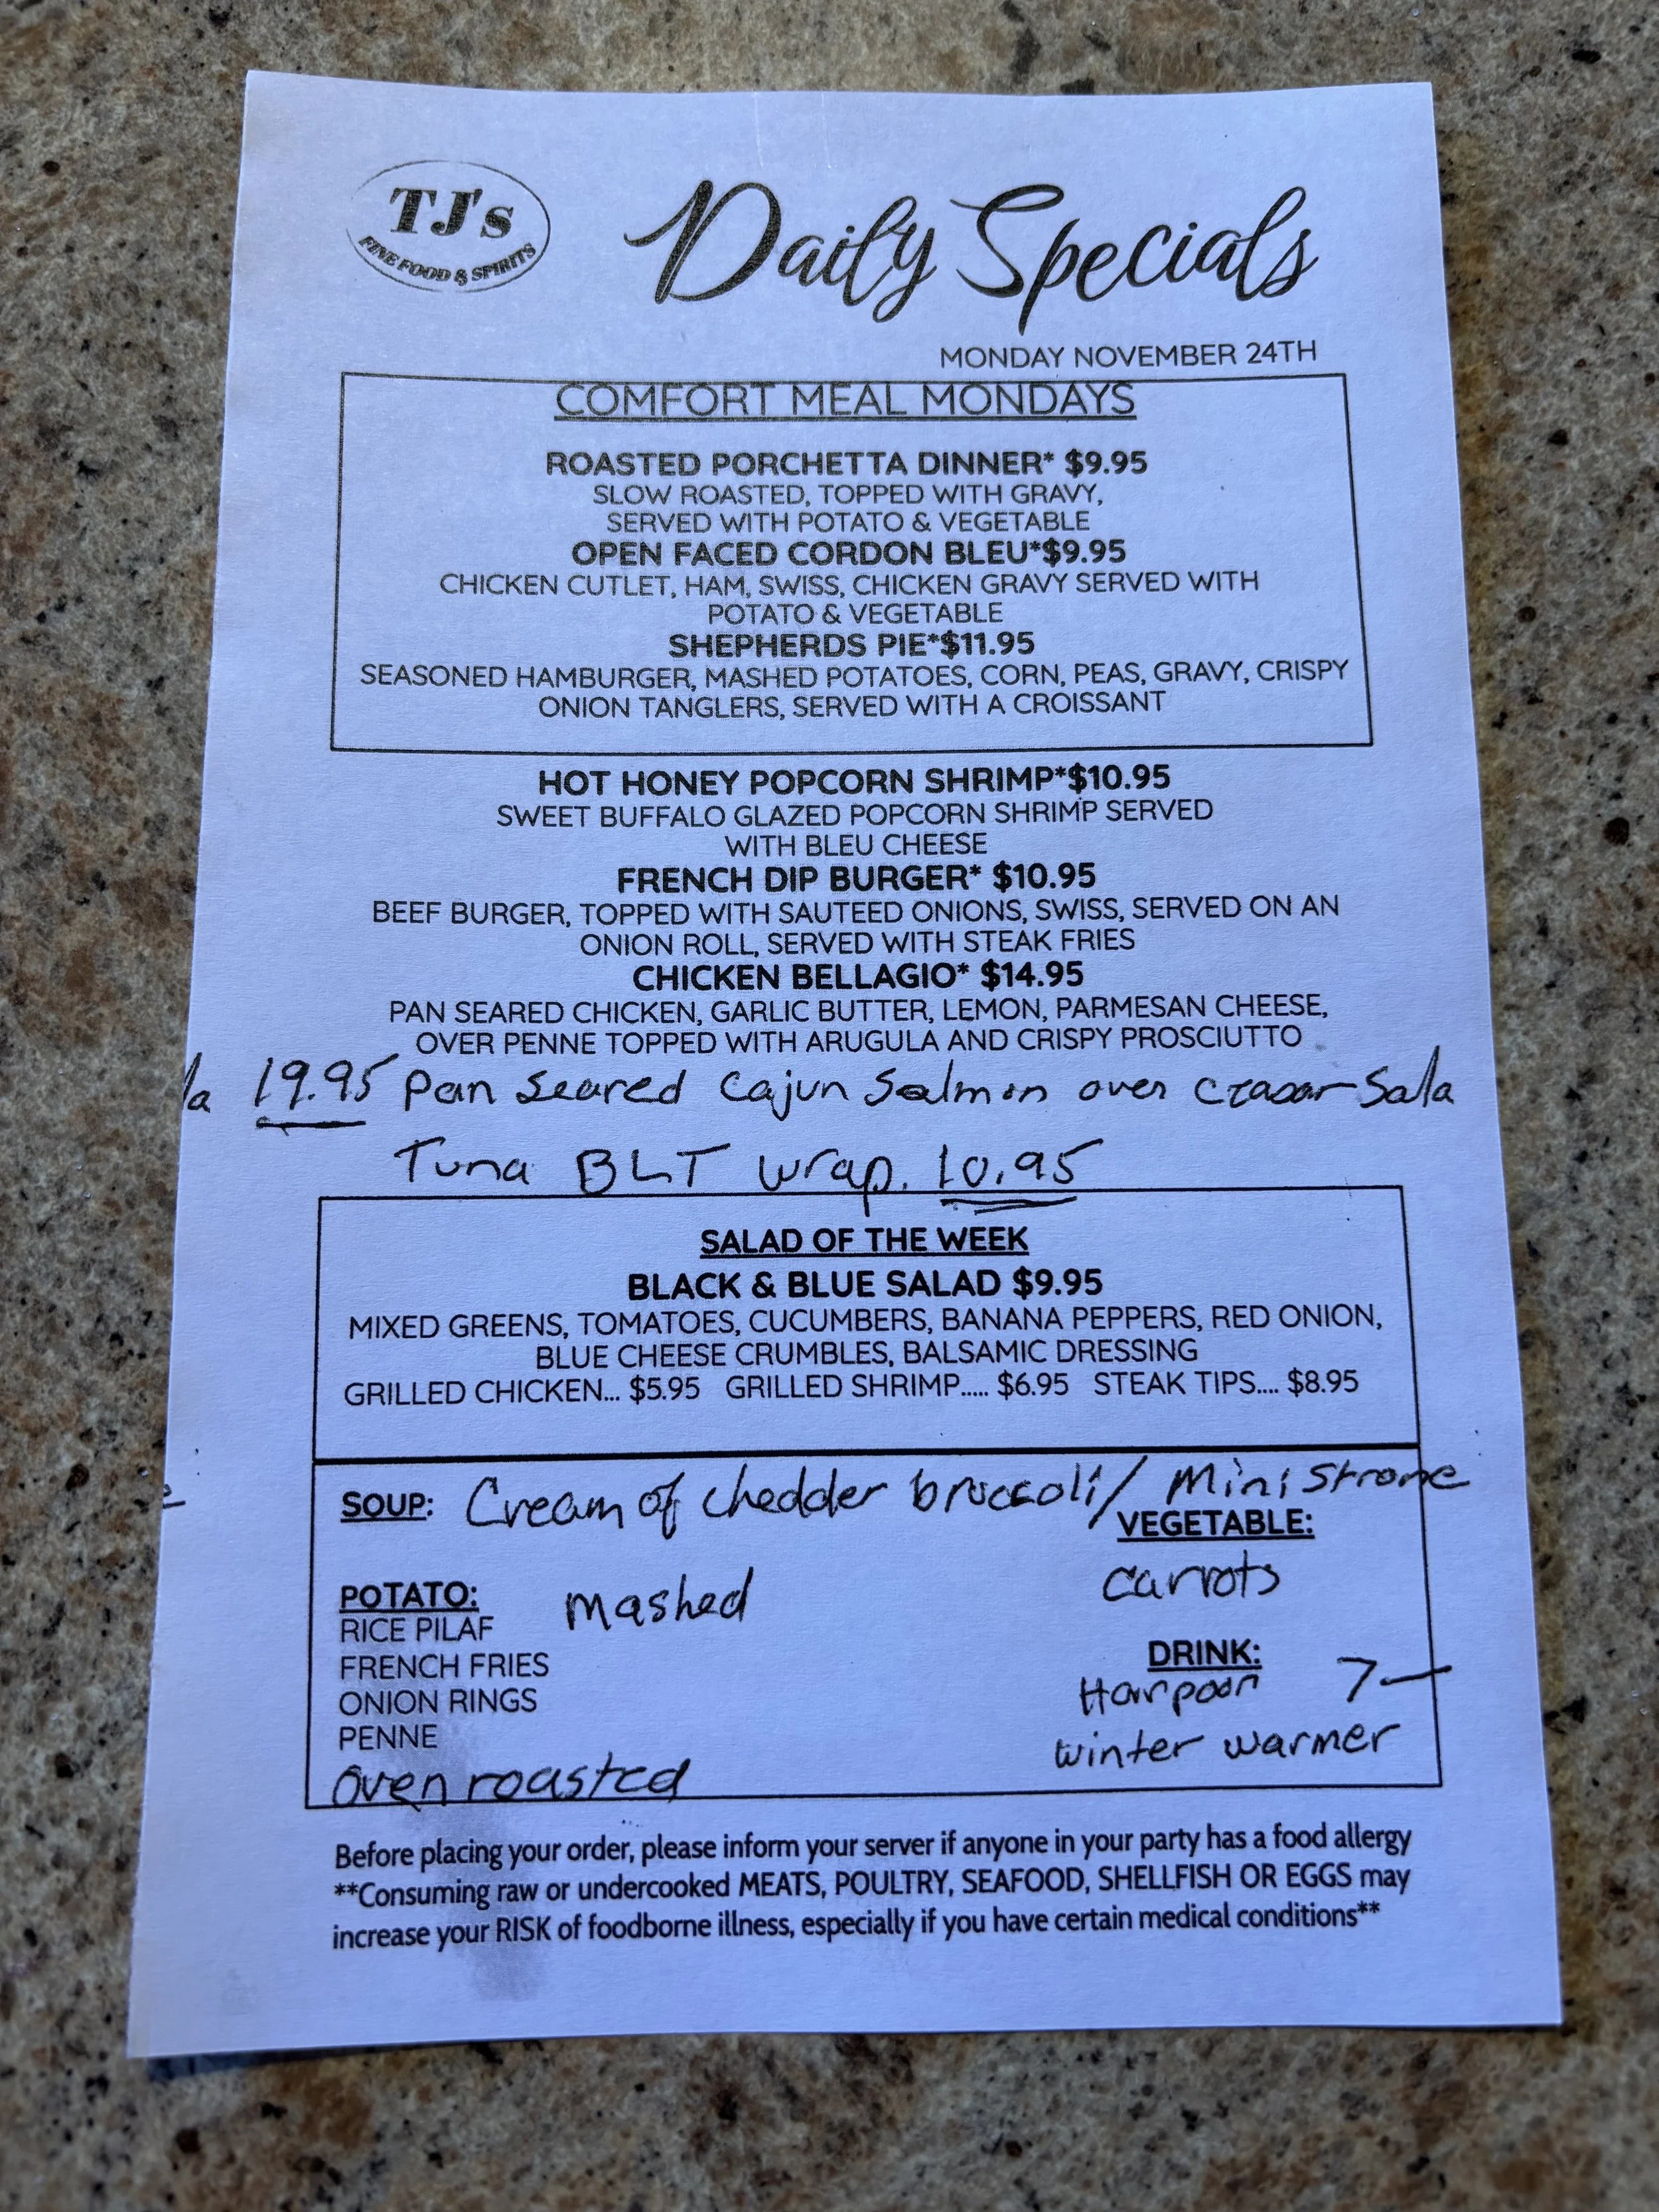 TJ's
FINE FOOD & SPIRITS
Daily Specials
MONDAY NOVEMBER 24TH
COMFORT MEAL MONDAYS
ROASTED PORCHETTA DINNER* $9.95
SLOW ROASTED, TOPPED WITH GRAVY,
SERVED WITH POTATO & VEGETABLE
OPEN FACED CORDON BLEU*$9.95
CHICKEN CUTLET, HAM, SWISS, CHICKEN GRAVY SERVED WITH
POTATO & VEGETABLE
SHEPHERDS PIE*$11.95
SEASONED HAMBURGER, MASHED POTATOES, CORN, PEAS, GRAVY, CRISPY
ONION TANGLERS, SERVED WITH A CROISSANT
HOT HONEY POPCORN SHRIMP*$10.95
SWEET BUFFALO GLAZED POPCORN SHRIMP SERVED
WITH BLEU CHEESE
FRENCH DIP BURGER* $10.95
BEEF BURGER, TOPPED WITH SAUTEED ONIONS, SWISS, SERVED ON AN
ONION ROLL, SERVED WITH STEAK FRIES
CHICKEN BELLAGIO* $14.95
PAN SEARED CHICKEN, GARLIC BUTTER, LEMON, PARMESAN CHEESE,
OVER PENNE TOPPED WITH ARUGULA AND CRISPY PROSCIUTTO
la 19.95 Pan Seared Cajun Salmon over Sala
Tuna BLT wrap. 10.95
SALAD OF THE WEEK
BLACK & BLUE SALAD $9.95
MIXED GREENS, TOMATOES, CUCUMBERS, BANANA PEPPERS, RED ONION,
BLUE CHEESE CRUMBLES, BALSAMIC DRESSING
GRILLED CHICKEN... $5.95 GRILLED SHRIMP..... $6.95 STEAK TIPS.... $8.95
SOUP: Cream of chedder broccoli / Ministrone
VEGETABLE:
carrots
POTATO: mashed
RICE PILAF
FRENCH FRIES
ONION RINGS
PENNE
oven roasted
DRINK:
Harpoon 7—
winter warmer
Before placing your order, please inform your server if anyone in your party has a food allergy
**Consuming raw or undercooked MEATS, POULTRY, SEAFOOD, SHELLFISH OR EGGS may
increase your RISK of foodborne illness, especially if you have certain medical conditions**